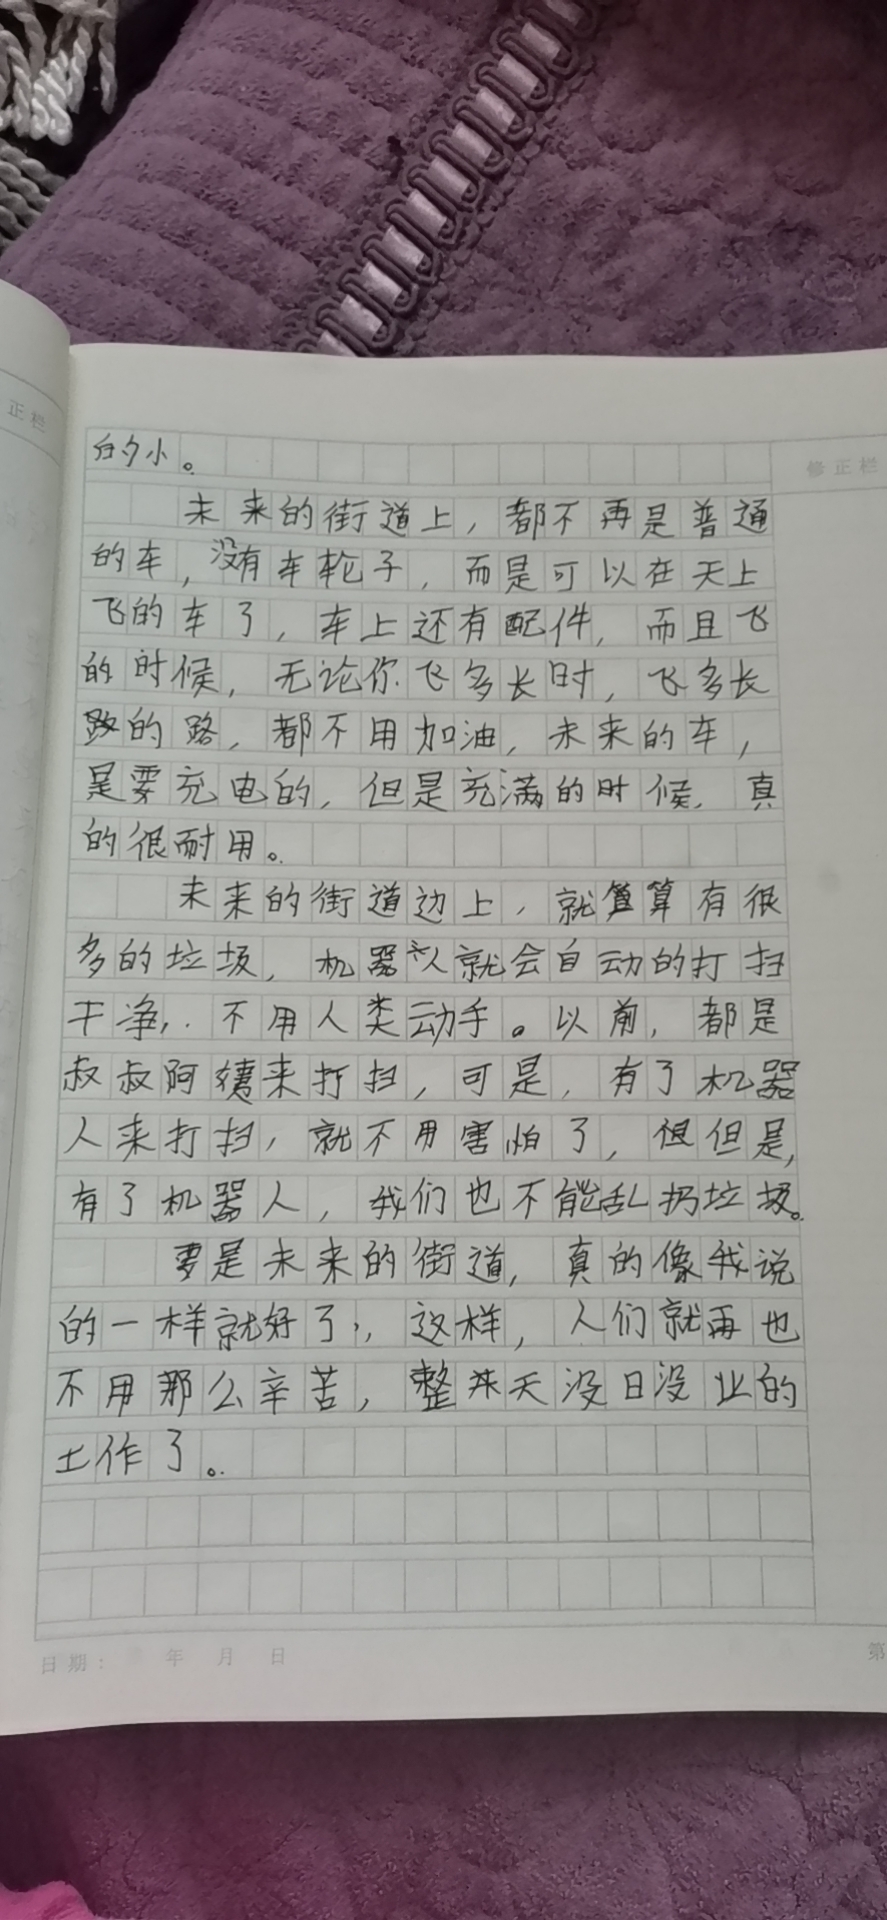 正栏
修正栏
的小。
未来的街道上，都不再是普通
的车，没有车轮子，而是可以在天上
飞的车了，车上还有配件，而且飞
的时候，无论你飞多长时，飞多长
的路，都不用加油，未来的车，
是要充电的，但是充满的时候，真
的很耐用。
未来的街道边上，就算有很
多的垃圾，机器人就会自动的打扫
干净，不用人类动手。以前，都是
叔叔阿姨来打扫，可是，有了机器
人来打扫，就不用害怕了，但是，
有了机器人，我们也不能乱扔垃圾。
要是未来的街道，真的像我说
的一样就好了，这样，人们就再也
不用那么辛苦，整天没日没业的
土作了。
日期： 年 月 日
第